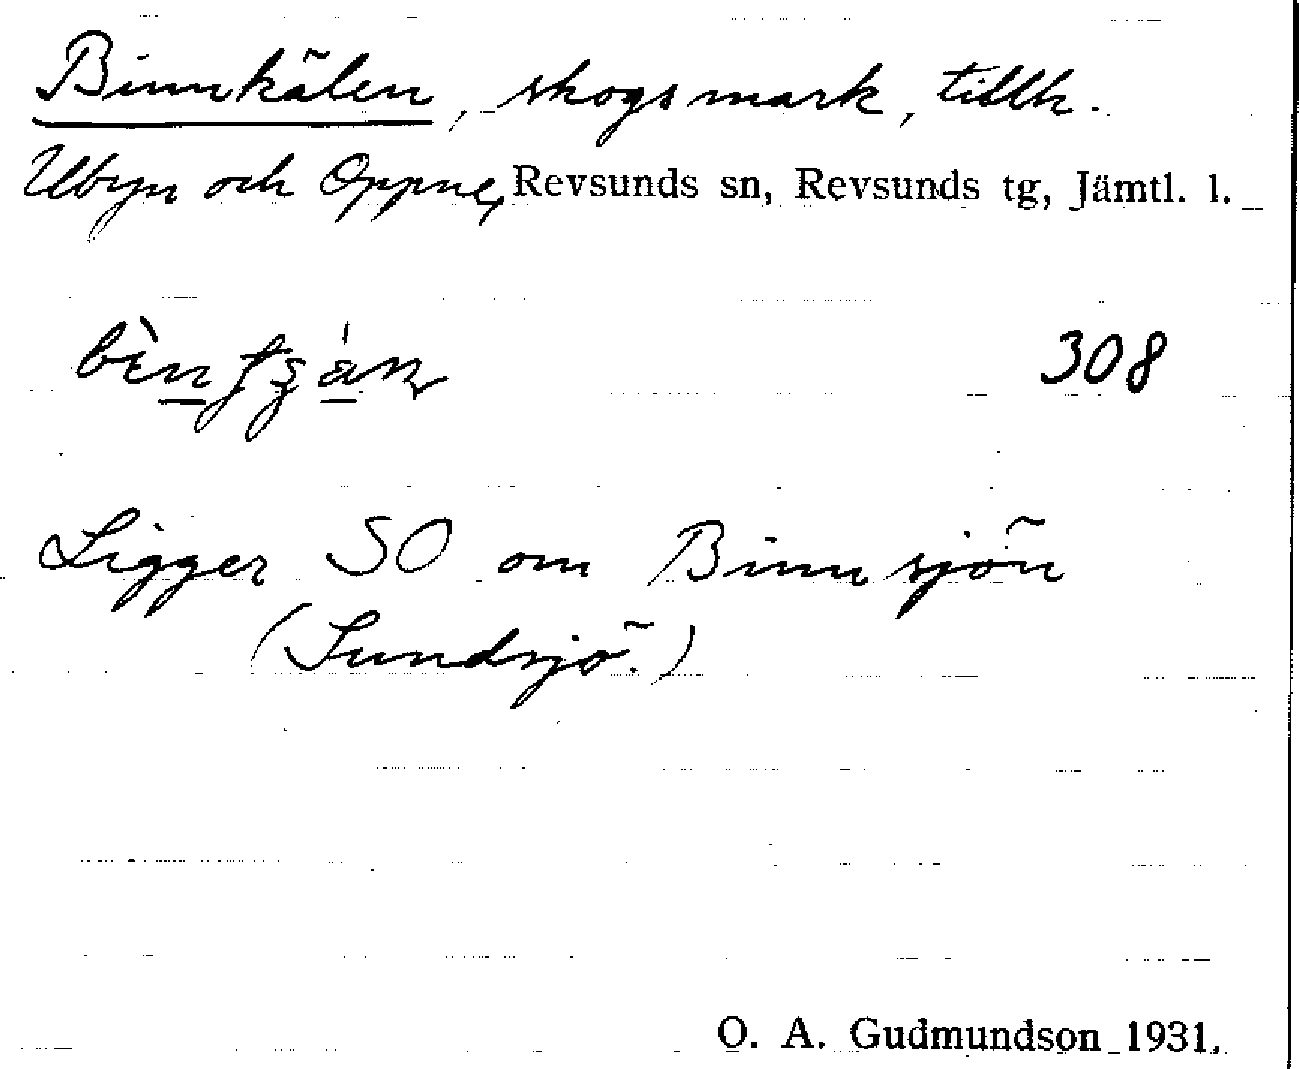 Binnkälen, skogsmark, tillh.
Utbyn och Oppne, Revsunds sn, Revsunds tg, Jämtl. l.
308
Ligger SO om Binnsjön
(Sundsjö.)
O. A. Gudmundson 1931.